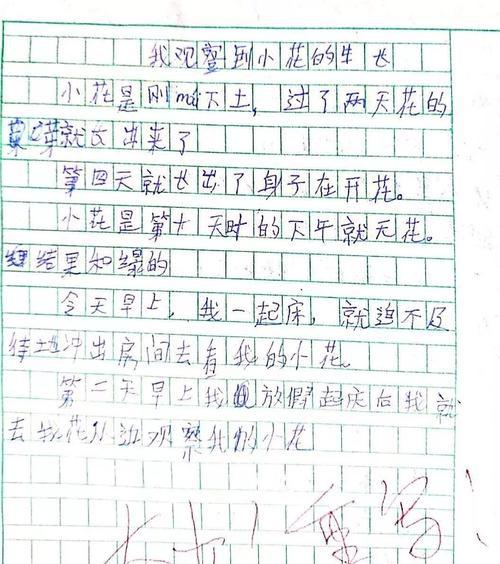 我观察到小花的生长
小花是刚mai下土，过了两天花的
芽就长出来了
第四天就长出了身子在开花。
小花是第十天时的下午就无花。
结果和绿的
今天早上，我一起床，就迫不及
待地冲出房间去看我的小花。
第二天早上我放假起床后我就
去花外边观察我的小花
重写！